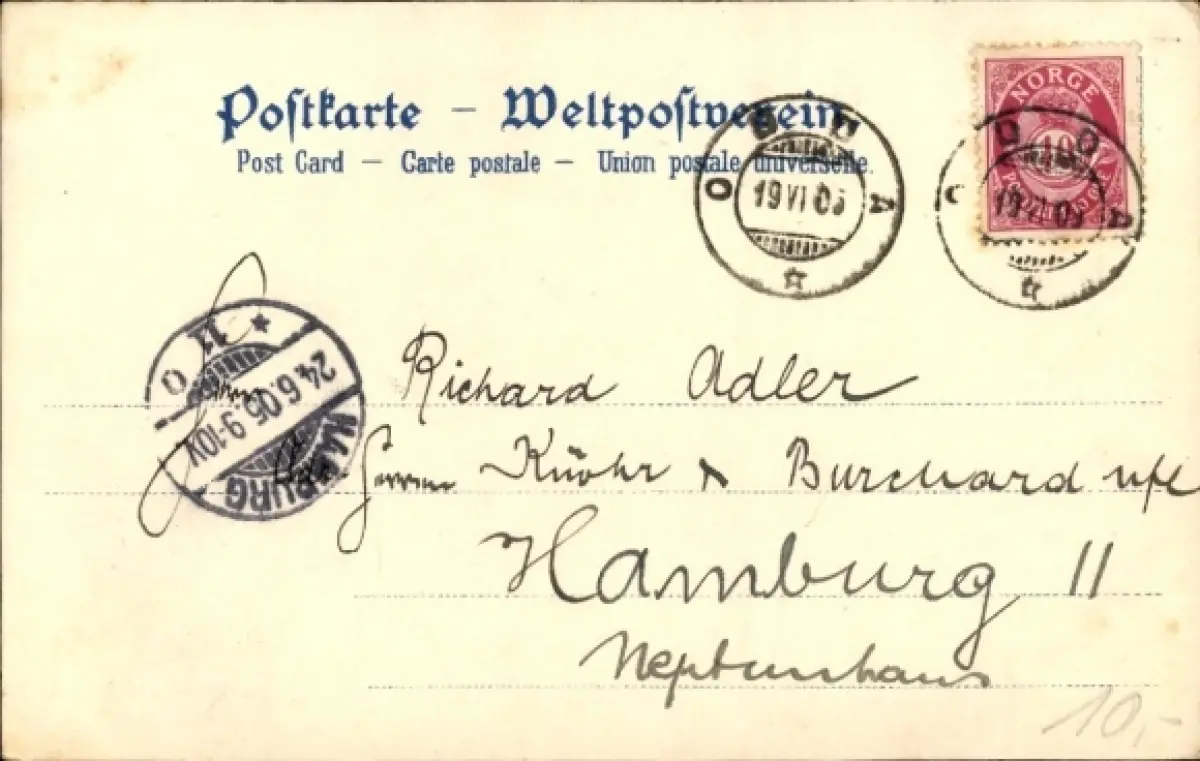 Postkarte – Weltpostverein
Post Card – Carte postale – Union postale universelle.
NORGE
10
ODDA
19 VI 05
ODDA
19 VI 05
HAMBURG
24.6.05 9-10V
11
Herrn Richard Adler
Herren & Burchard
Hamburg 11
Neptunhaus
10,-